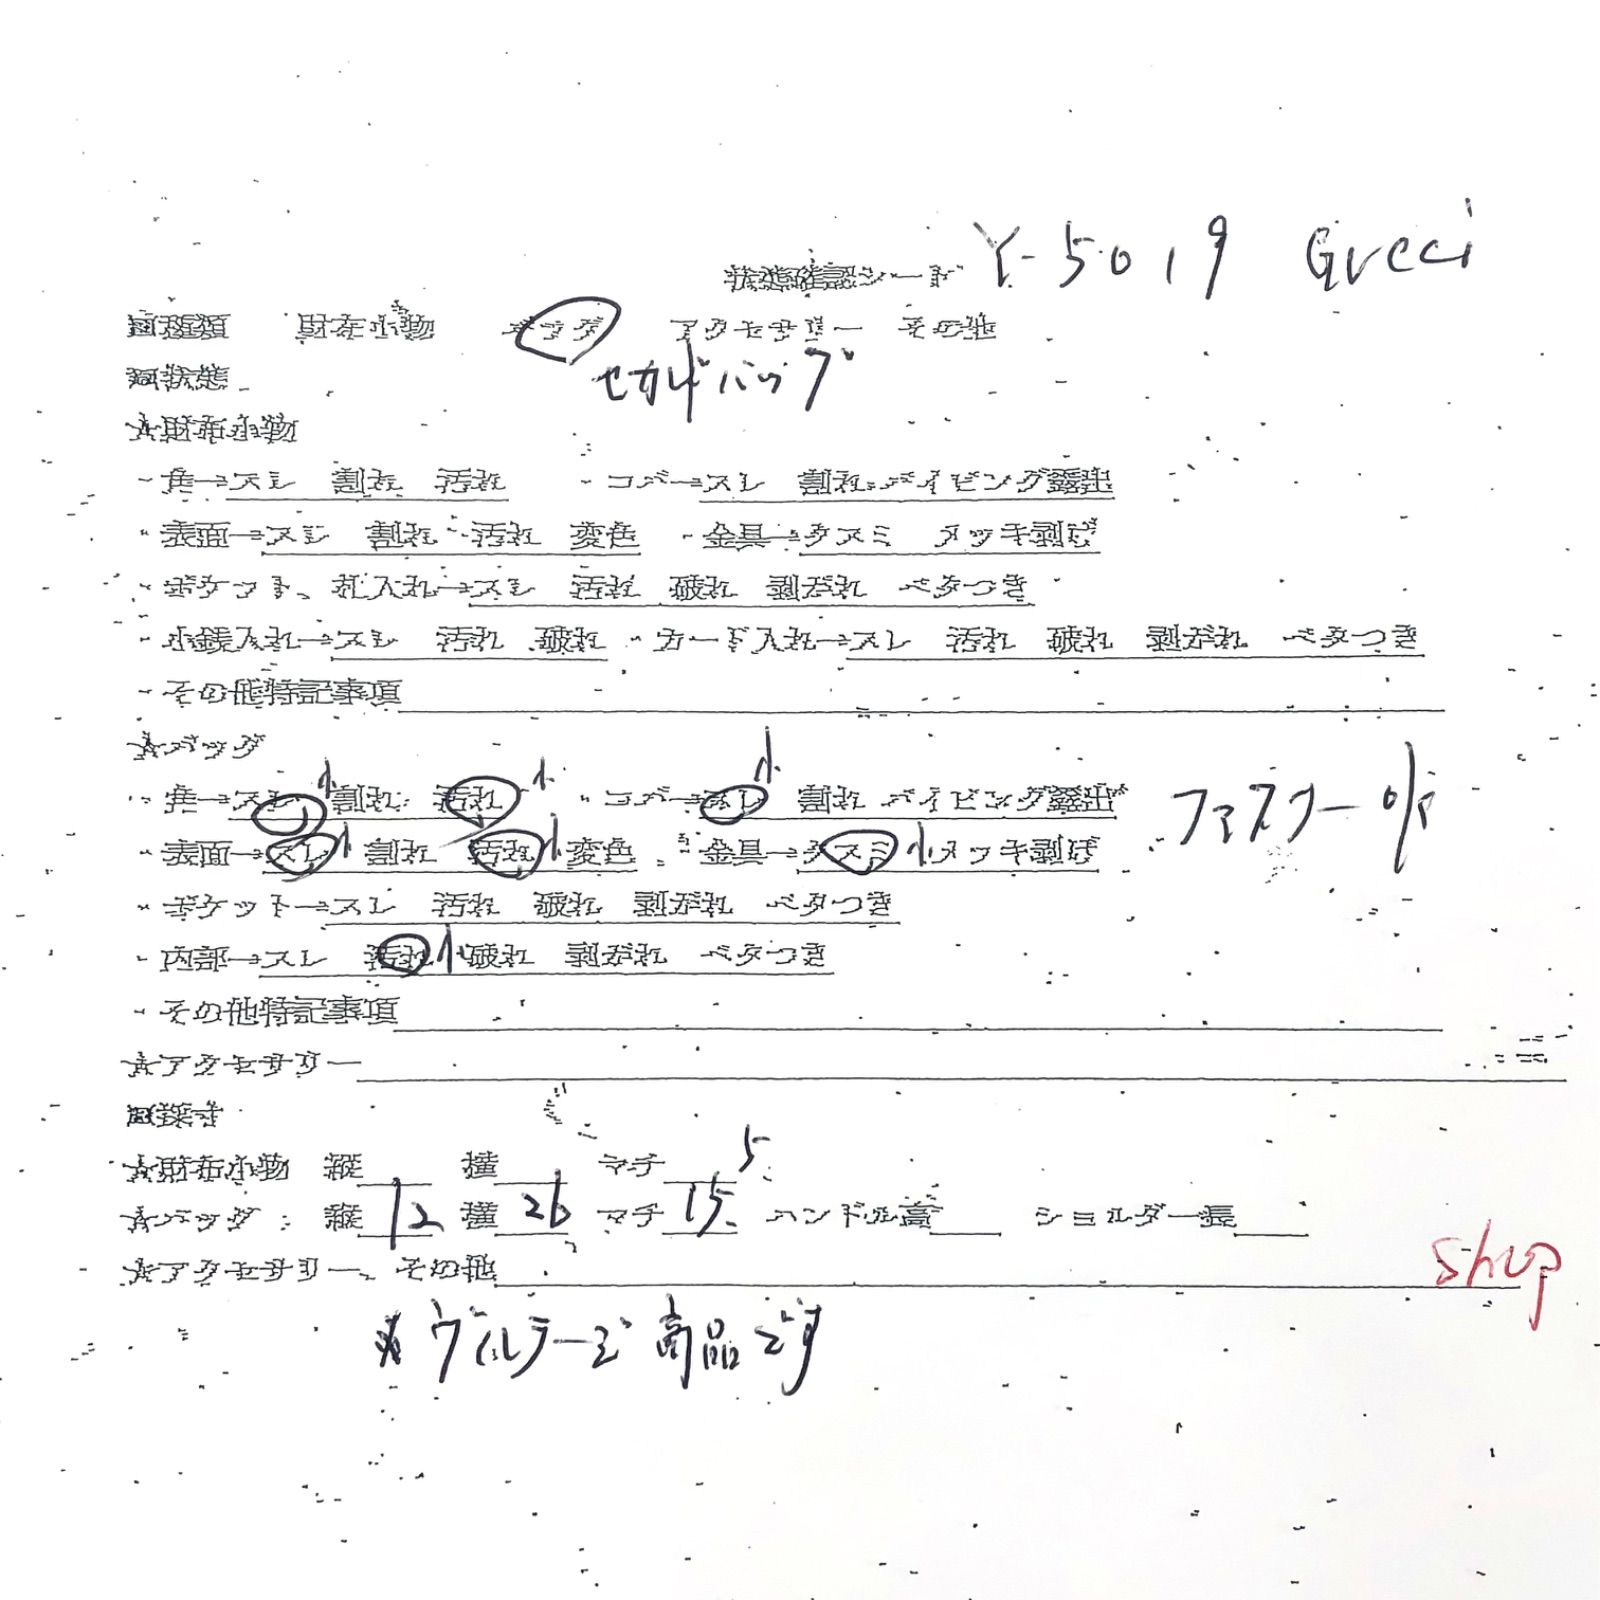 状態確認シート Y-5019 Gucci
□種類 財布小物 バッグ アクセサリー その他
セカンドバッグ
□状態
☆財布小物
・角→スレ 割れ 汚れ ・コバ→スレ 割れ パイピング露出
・表面→スレ 割れ 汚れ 変色 ・金具→クスミ メッキ剥げ
・ポケット、札入れ→スレ 汚れ 破れ 剥がれ ベタつき
・小銭入れ→スレ 汚れ 破れ ・カード入れ→スレ 汚れ 破れ 剥がれ ベタつき
・その他特記事項
☆バッグ
・角→スレ小 割れ 汚れ小 ・コバ→スレ小 割れ パイピング露出 ファスナー
・表面→スレ小 割れ 汚れ小 変色 ・金具→クスミ小 メッキ剥げ
・ポケット→スレ 汚れ 破れ 剥がれ ベタつき
・内部→スレ 汚れ小 破れ 剥がれ ベタつき
・その他特記事項
☆アクセサリー
□採寸
☆財布小物 縦 横 マチ 5
☆バッグ 縦 12 横 26 マチ 15 ハンドル高 ショルダー長
☆アクセサリー、その他 shop
ヴィンテージ商品です